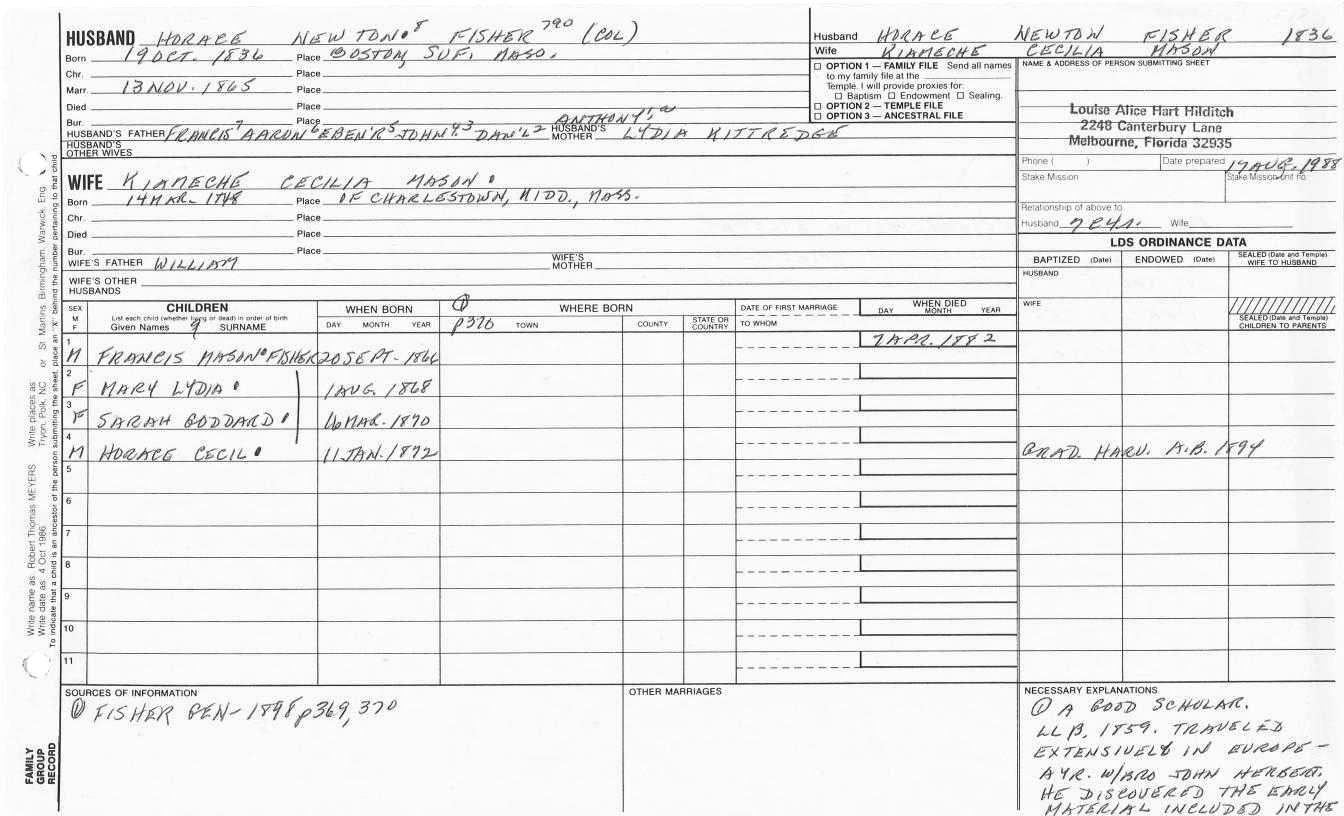 HUSBAND HORACE NEWTON.8 FISHER 790 (COL)
Born 19 OCT. 1836 Place BOSTON, SUF. MASS.
Chr. Place
Marr. 13 NOV. 1865 Place
Died Place
Bur. Place
HUSBAND'S FATHER FRANCIS7 AARON6 EBEN'R5 JOHN4,3 DAN'L2 ANTHONY1,a HUSBAND'S MOTHER LYDIA KITTREDGE
HUSBAND'S OTHER WIVES
WIFE KIAMECHE CECILIA MASON
Born 14 MAR. 1848 Place OF CHARLESTOWN, MIDD., MASS.
Chr. Place
Died Place
Bur. Place
WIFE'S FATHER WILLIAM WIFE'S MOTHER
WIFE'S OTHER HUSBANDS
Husband HORACE NEWTON FISHER 1836
Wife KIAMECHE CECILIA MASON
☐ OPTION 1 — FAMILY FILE Send all names
to my family file at the
Temple. I will provide proxies for:
☐ Baptism ☐ Endowment ☐ Sealing.
☐ OPTION 2 — TEMPLE FILE
☐ OPTION 3 — ANCESTRAL FILE
NAME & ADDRESS OF PERSON SUBMITTING SHEET
Louise Alice Hart Hilditch
2248 Canterbury Lane
Melbourne, Florida 32935
Phone ( ) Date prepared 17 AUG. 1988
Stake Mission Stake Mission unit no.
Relationship of above to
Husband Wife
LDS ORDINANCE DATA
BAPTIZED (Date) ENDOWED (Date) SEALED (Date and Temple) WIFE TO HUSBAND
HUSBAND
WIFE
SEALED (Date and Temple) CHILDREN TO PARENTS
SEX M F
CHILDREN
List each child (whether living or dead) in order of birth
Given Names 9 SURNAME
WHEN BORN
DAY MONTH YEAR
① p370
WHERE BORN
TOWN COUNTY STATE OR COUNTRY
DATE OF FIRST MARRIAGE
TO WHOM
WHEN DIED
DAY MONTH YEAR
1 M FRANCIS MASON FISHER 20 SEPT- 1866 7 APR. 1882
2 F MARY LYDIA 1 AUG. 1868
3 F SARAH GODDARD 16 MAR. 1870
4 M HORACE CECIL 11 JAN. 1872 GRAD. HARV. A.B. 1894
5
6
7
8
9
10
11
SOURCES OF INFORMATION
① FISHER GEN- 1898 p369, 370
OTHER MARRIAGES
NECESSARY EXPLANATIONS
① A GOOD SCHOLAR.
LL B. 1859. TRAVELED
EXTENSIVELY IN EUROPE -
A YR. W/BRO JOHN HERBERT.
HE DISCOVERED THE EARLY
MATERIAL INCLUDED IN THE
Write name as Robert Thomas MEYERS Write places as Tryon, Polk, NC or St Martins, Birmingham, Warwick, Eng.
Write date as 4 Oct 1986
To indicate that a child is an ancestor of the person submitting the sheet, place an "X" behind the number pertaining to that child
FAMILY
GROUP
RECORD